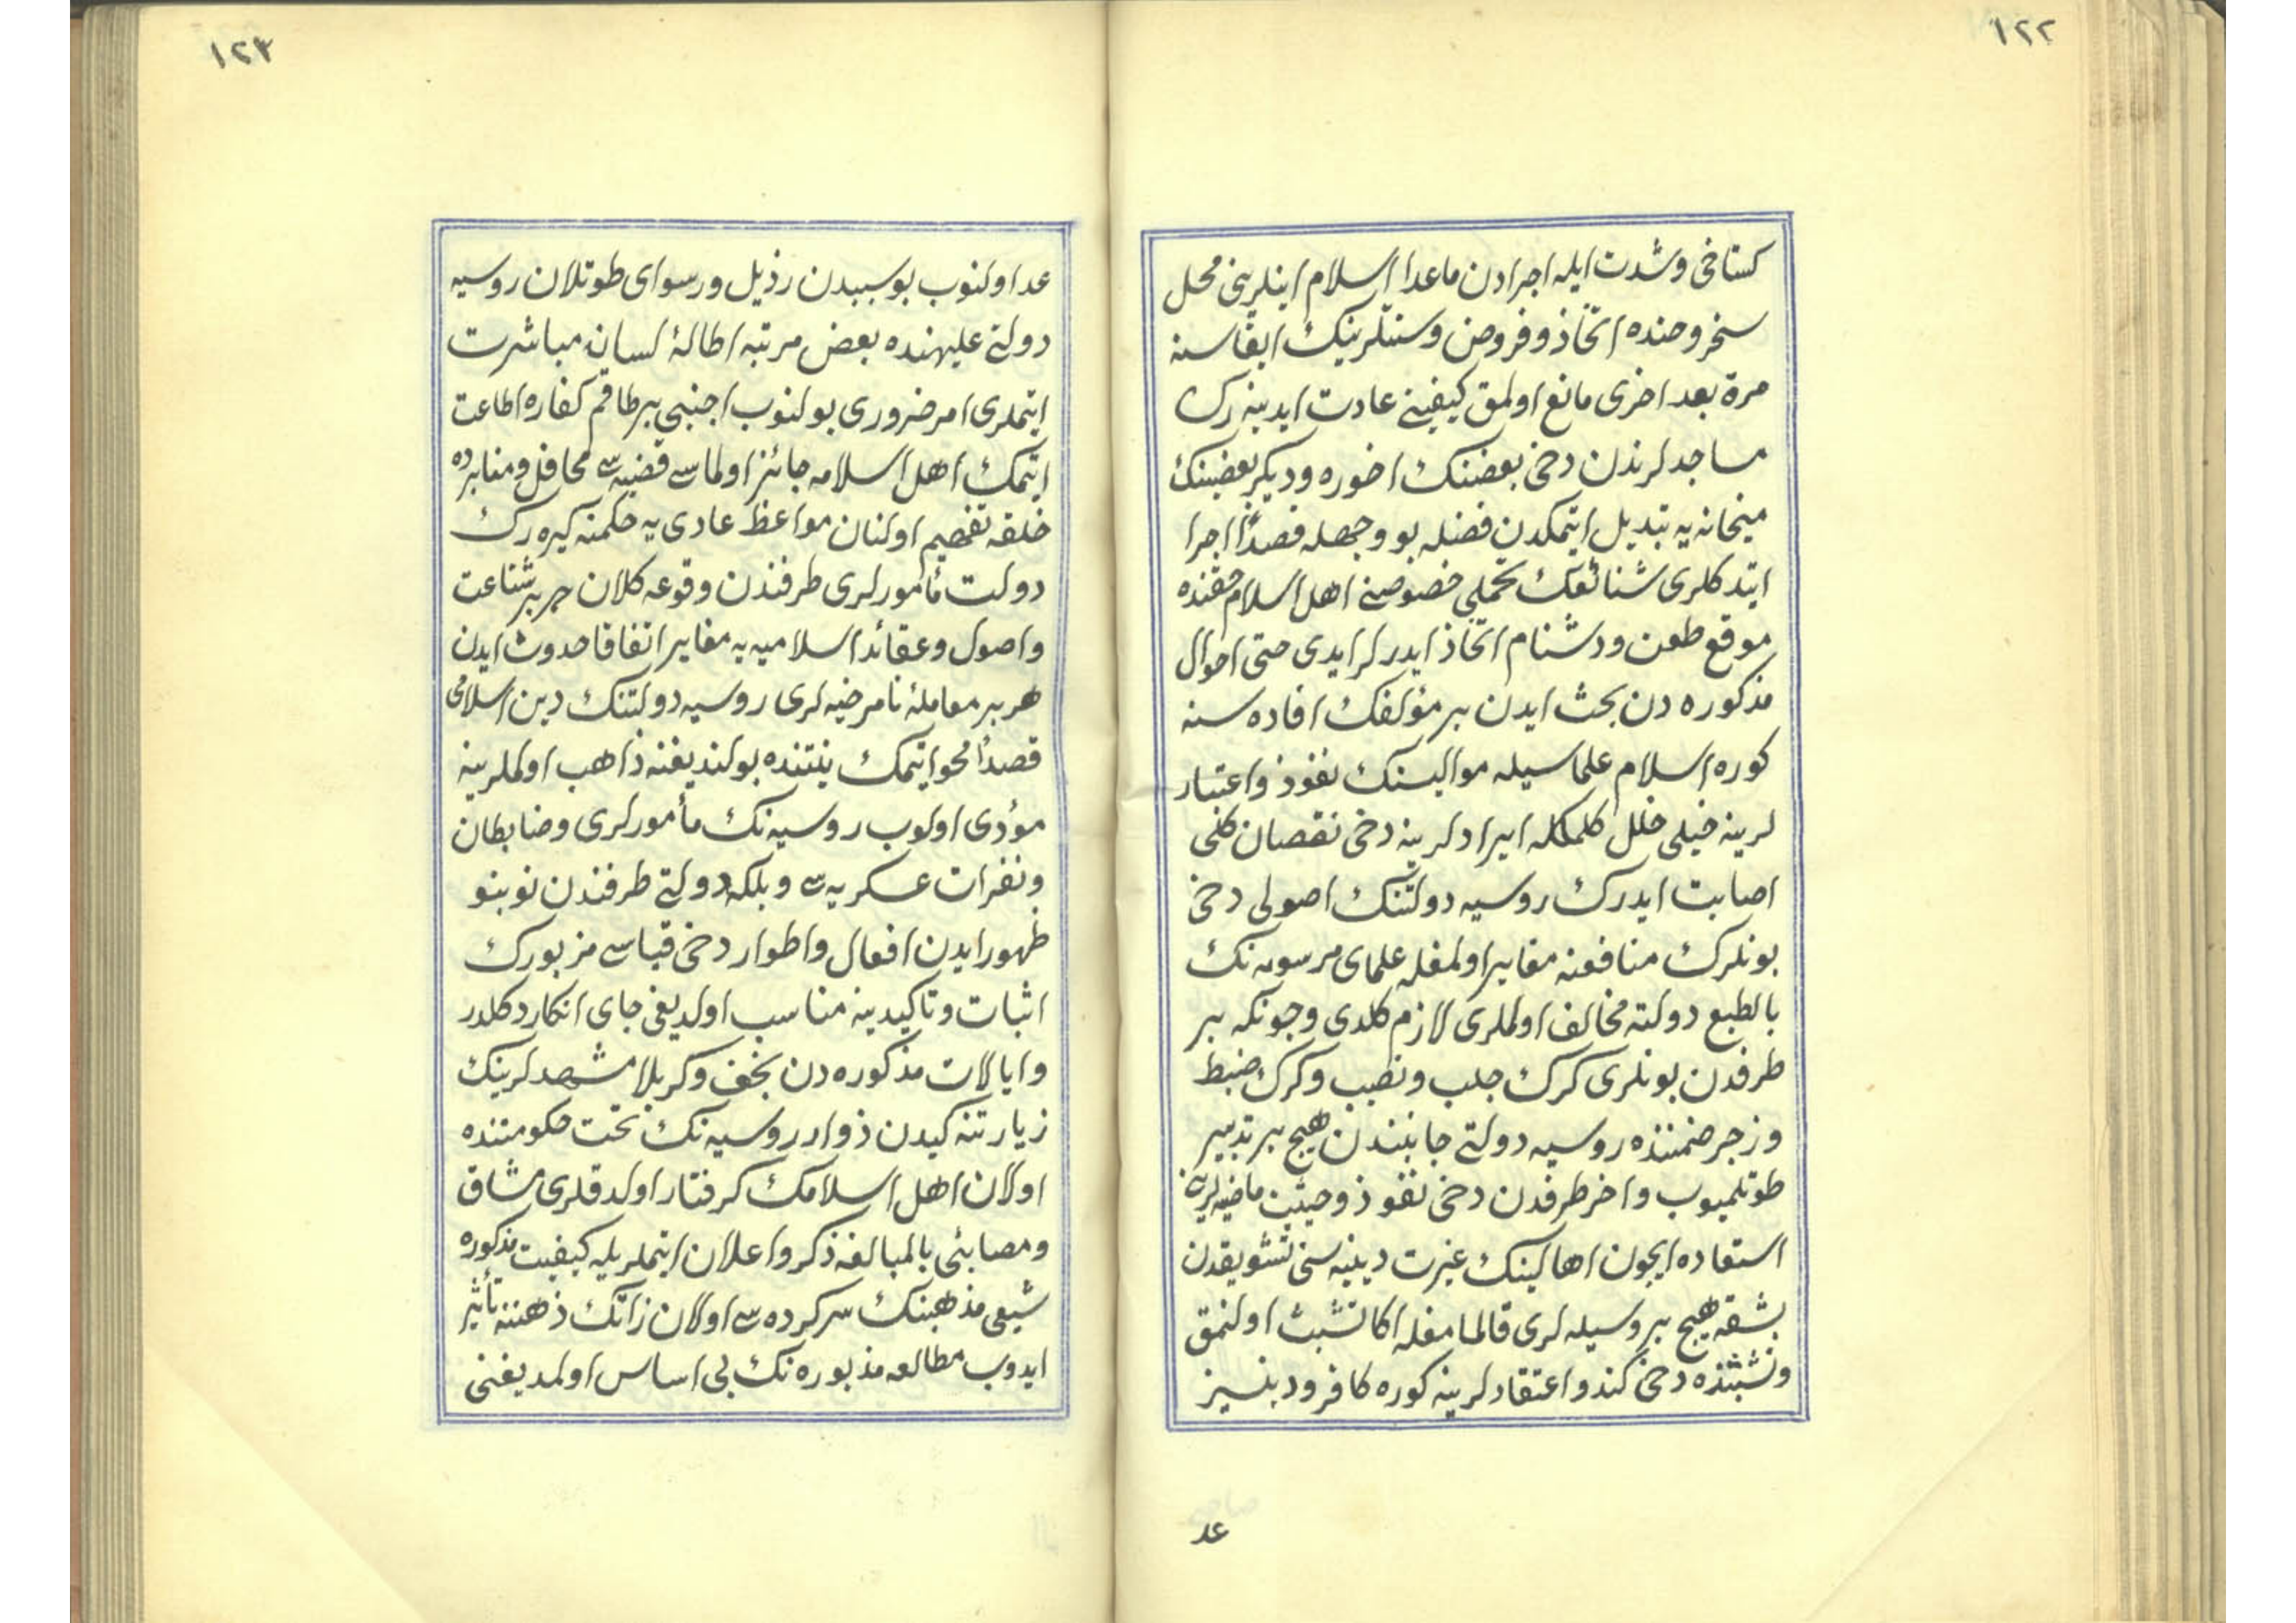 ١٢٢
كستاخى وشدت ايله اجرادن ماعدا اسلام اينلرينى محل
سخر وخنده اتخاذ وفروض وسنتلرينك ايفاسنه
مرة بعد اخرى مانع اولمق كيفيتى عادت ايدينه رك
مساجدلرندن دخى بعضنك اخوره وديكر بعضينك
ميخانه يه تبديل ايتمكدن فضله بو وجهله قصداً اجرا
ايتدكلرى شنائعك تحملى خصوصنى اهل اسلام حقنده
موقع طعن ودشنام اتخاذ ايدرلر ايدى حتى احوال
مذكوره دن بحث ايدن بر مؤلفك افاده سنه
كوره اسلام علماسيله مواليسنك نفوذ واعتبار
لرينه خيلى خلل كلمكله ايرادلرينه دخى نقصان كلى
اصابت ايدرك روسيه دولتنك اصولى دخى
بونلرك منافعنه مغاير اولمغله علماى مرسومه نك
بالطبع دولته مخالف اولملرى لازم كلدى وچونكه بر
طرفدن بونلرى كرك جلب ونصب وكرك ضبط
وزجر ضمننده روسيه دولتى جانبندن هيچ بر تدبير
طوتلميوب واخر طرفدن دخى نفوذ وحيثيت ماضيه لرينه
استعاده ايچون اهالينك غيرت دينيه سنى تشويقدن
بشقه هيچ بر وسيله لرى قالمامغله اكا تشبث اولنمق
وتشبثنده دخى كندو اعتقادلرينه كوره كافر ودينسز
عد
١٢٣
عد اولنوب بو سببدن رذيل ورسواى طوتلان روسيه
دولتى عليهنده بعض مرتبه اطالهٔ لسانه مباشرت
ايتملرى امر ضرورى بولنوب اجنبى بر طاقم كفاره اطاعت
ايتمك اهل اسلامه جائز اولماسى قضيه سى محافل ومنابرده
خلقه تفهيم اولنان مواعظ عادى يه حكمنه كيره رك
دولت مأمورلرى طرفندن وقوعه كلان هر بر شناعت
واصول وعقائد اسلاميه يه مغاير اتفاقا حدوث ايدن
هر بر معاملهٔ نامرضيه لرى روسيه دولتنك دين اسلامى
قصداً محو ايتمك نيتنده بولنديغنه ذاهب اولملرينه
مؤدى اولوب روسيه نك مأمورلرى وضابطان
ونفرات عسكريه سى وبلكه دولتى طرفندن نو بنو
ظهور ايدن افعال واطوار دخى قياسى مزبورك
اثبات وتاكيدينه مناسب اولديغى جاى انكار دكلدر
وايالات مذكوره دن نجف وكربلا مشهدلرينك
زيارتنه كيدن ذوار روسيه نك تحت حكومتنده
اولان اهل اسلامك كرفتار اولدقلرى مشاق
ومصائبى بالمبالغه ذكر واعلان ايتملريله كيفيت مذكوره
شيعى مذهبنك سركرده سى اولان زاتك ذهننه تأثير
ايدوب مطالعه مذبوره نك بى اساس اولمديغنى